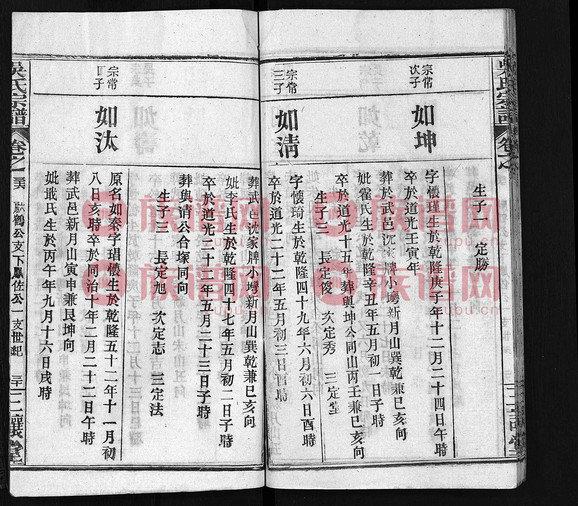 生子一 定勝
宗常
次子
如坤
字懷瑾生於乾隆庚子年十二月二十四日午時
卒於道光壬寅年
葬於武邑沈家牌小塆新月山巽乾兼巳亥向
妣霍氏生於乾隆辛丑年五月初一日子時
卒於道光十五年葬與坤公同山丙壬兼巳亥向
生子三 長定俊 次定秀 三定堂
宗常
三子
如清
字懷琦生於乾隆四十九年六月初六日酉時
卒於道光二十二年五月初三日酉時
葬武邑沈家牌小塆新月山巽乾兼巳亥向
妣李氏生於乾隆四十七年五月初二日子時
卒於道光二十年五月二十三日子時
葬與清公合塚同向
生子三 長定旭 次定志 三定法
宗常
四子
如汰
原名如泰字琩懷生於乾隆五十二年十一月初
八日亥時卒於同治十年二月二十二日午時
葬武邑新月山寅申兼艮坤向
妣珉氏生於丙午年九月十六日戌時
吳氏宗譜
卷之
鶴公支下鳳佐公一支世紀
三十